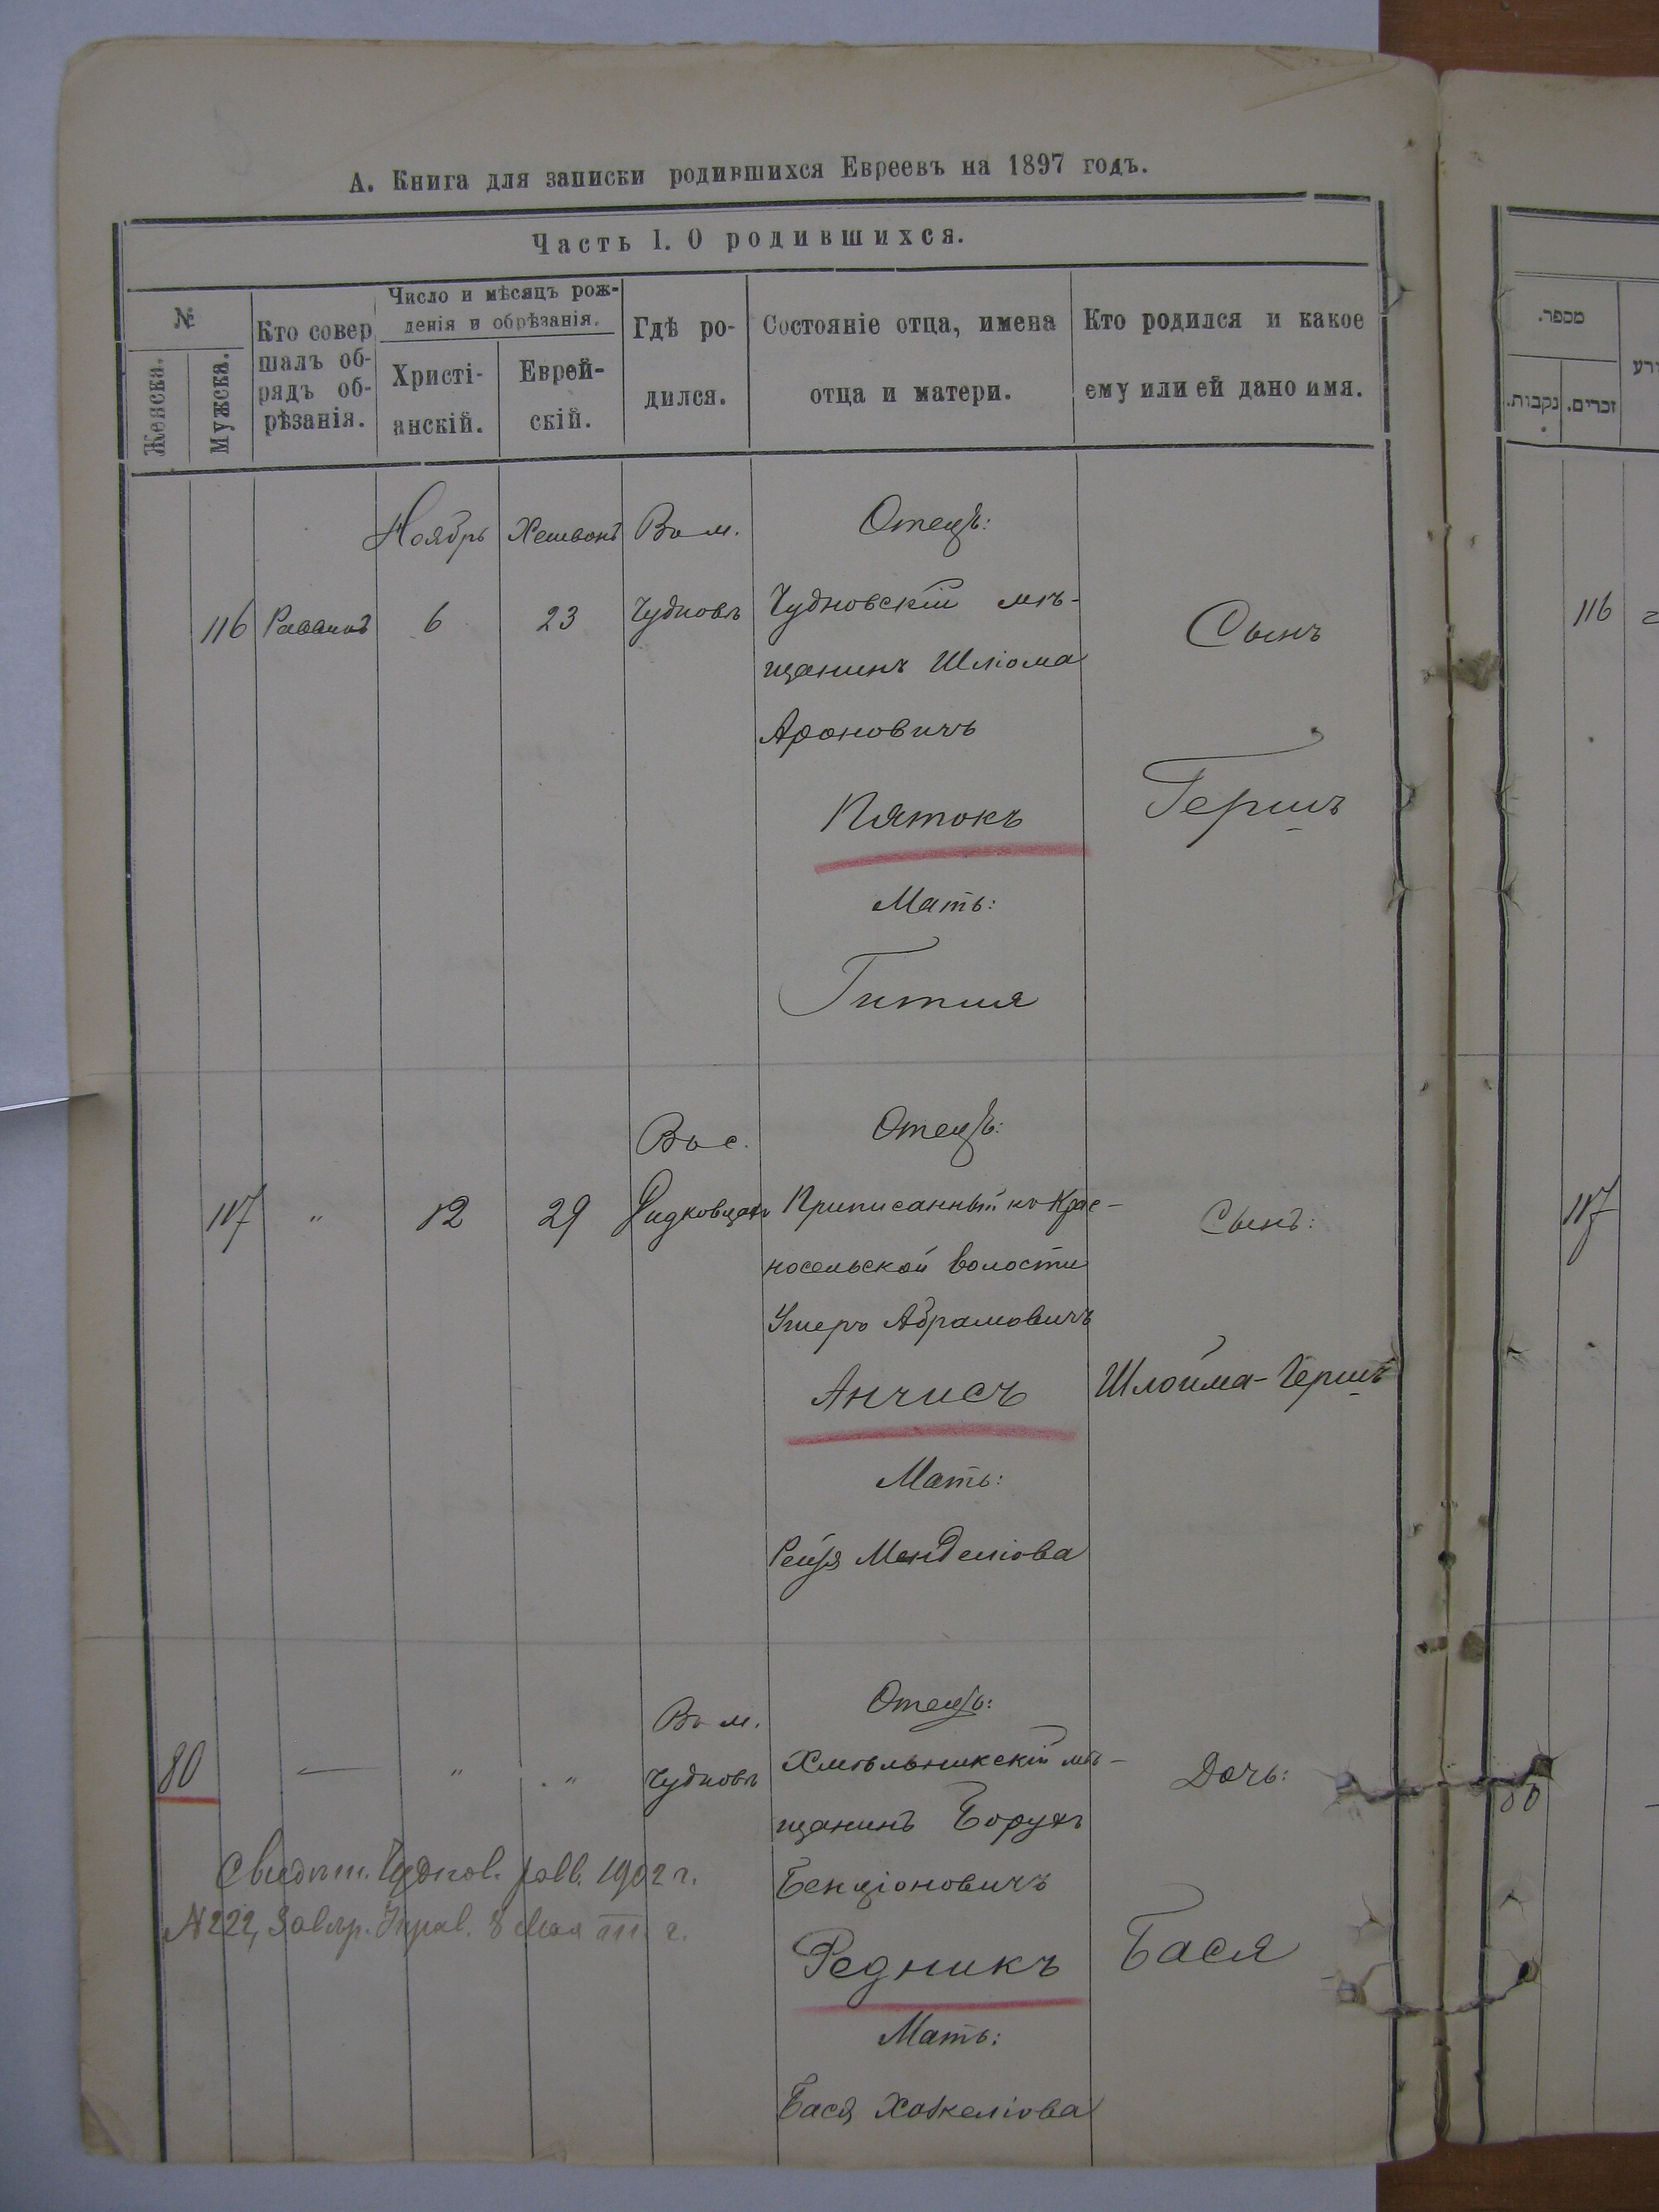 А. Книга для записки родившихся Евреевъ на 1897 годъ.
Часть I. О родившихся.
№
Женска.
Мужска.
Кто совер
шалъ об-
рядъ об-
рѣзанія.
Число и мѣсяцъ рож-
денія и обрѣзанія.
Христі-
анскій.
Еврей-
скій.
Гдѣ ро-
дился.
Состояніе отца, имена
отца и матери.
Кто родился и какое
ему или ей дано имя.
Ноябрь Хешвонъ Въ м. Отецъ:
116 6 23 Чудновѣ Чудновскій мѣ-
щанинъ Шлiома
Ароновичъ
Пятокъ
Мать:
Гитля
Сынъ
Гершъ
Въ с. Отецъ:
117 " 12 29 Приписанный къ Крас-
носельской волости
Ушеръ Абрамовичъ
Анчисъ
Мать:
Рейзя Менделіова
Сынъ:
Шлойма-Гершъ
Въ м. Отецъ:
80 — " " Чудновѣ Хмѣльникскій мѣ-
щанинъ Борухъ
Бенціоновичъ
Редникъ
Мать:
Бася
Дочь:
Бася
Свидѣт. Чуднов. равв. 1902 г.
№222, 8 Мая т. г.
מספר.
נקבות.
זכרים.
116
117
80